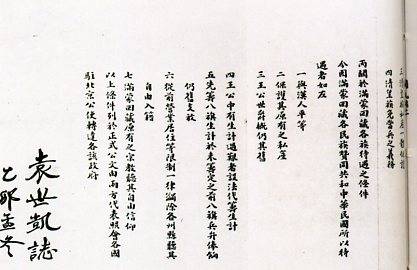 四清皇族免當兵之義務
丙關於滿蒙回藏各族待遇之條件
今因滿蒙回藏各民族贊同共和中華民國所以待
遇者如左
一與漢人平等
二保護其原有之私產
三王公世爵概仍其舊
四王公中有生計過艱者設法代籌生計
五先籌八旗生計於未籌定之前八旗兵弁俸餉
仍舊支放
六從前營業居住等限制一律蠲除各州縣聽其
自由入籍
七滿蒙回藏原有之宗教聽其自由信仰
以上條件列於正式公文由兩方代表照會各國
駐北京公使轉達各該政府
袁世凱誌
乙卯孟冬